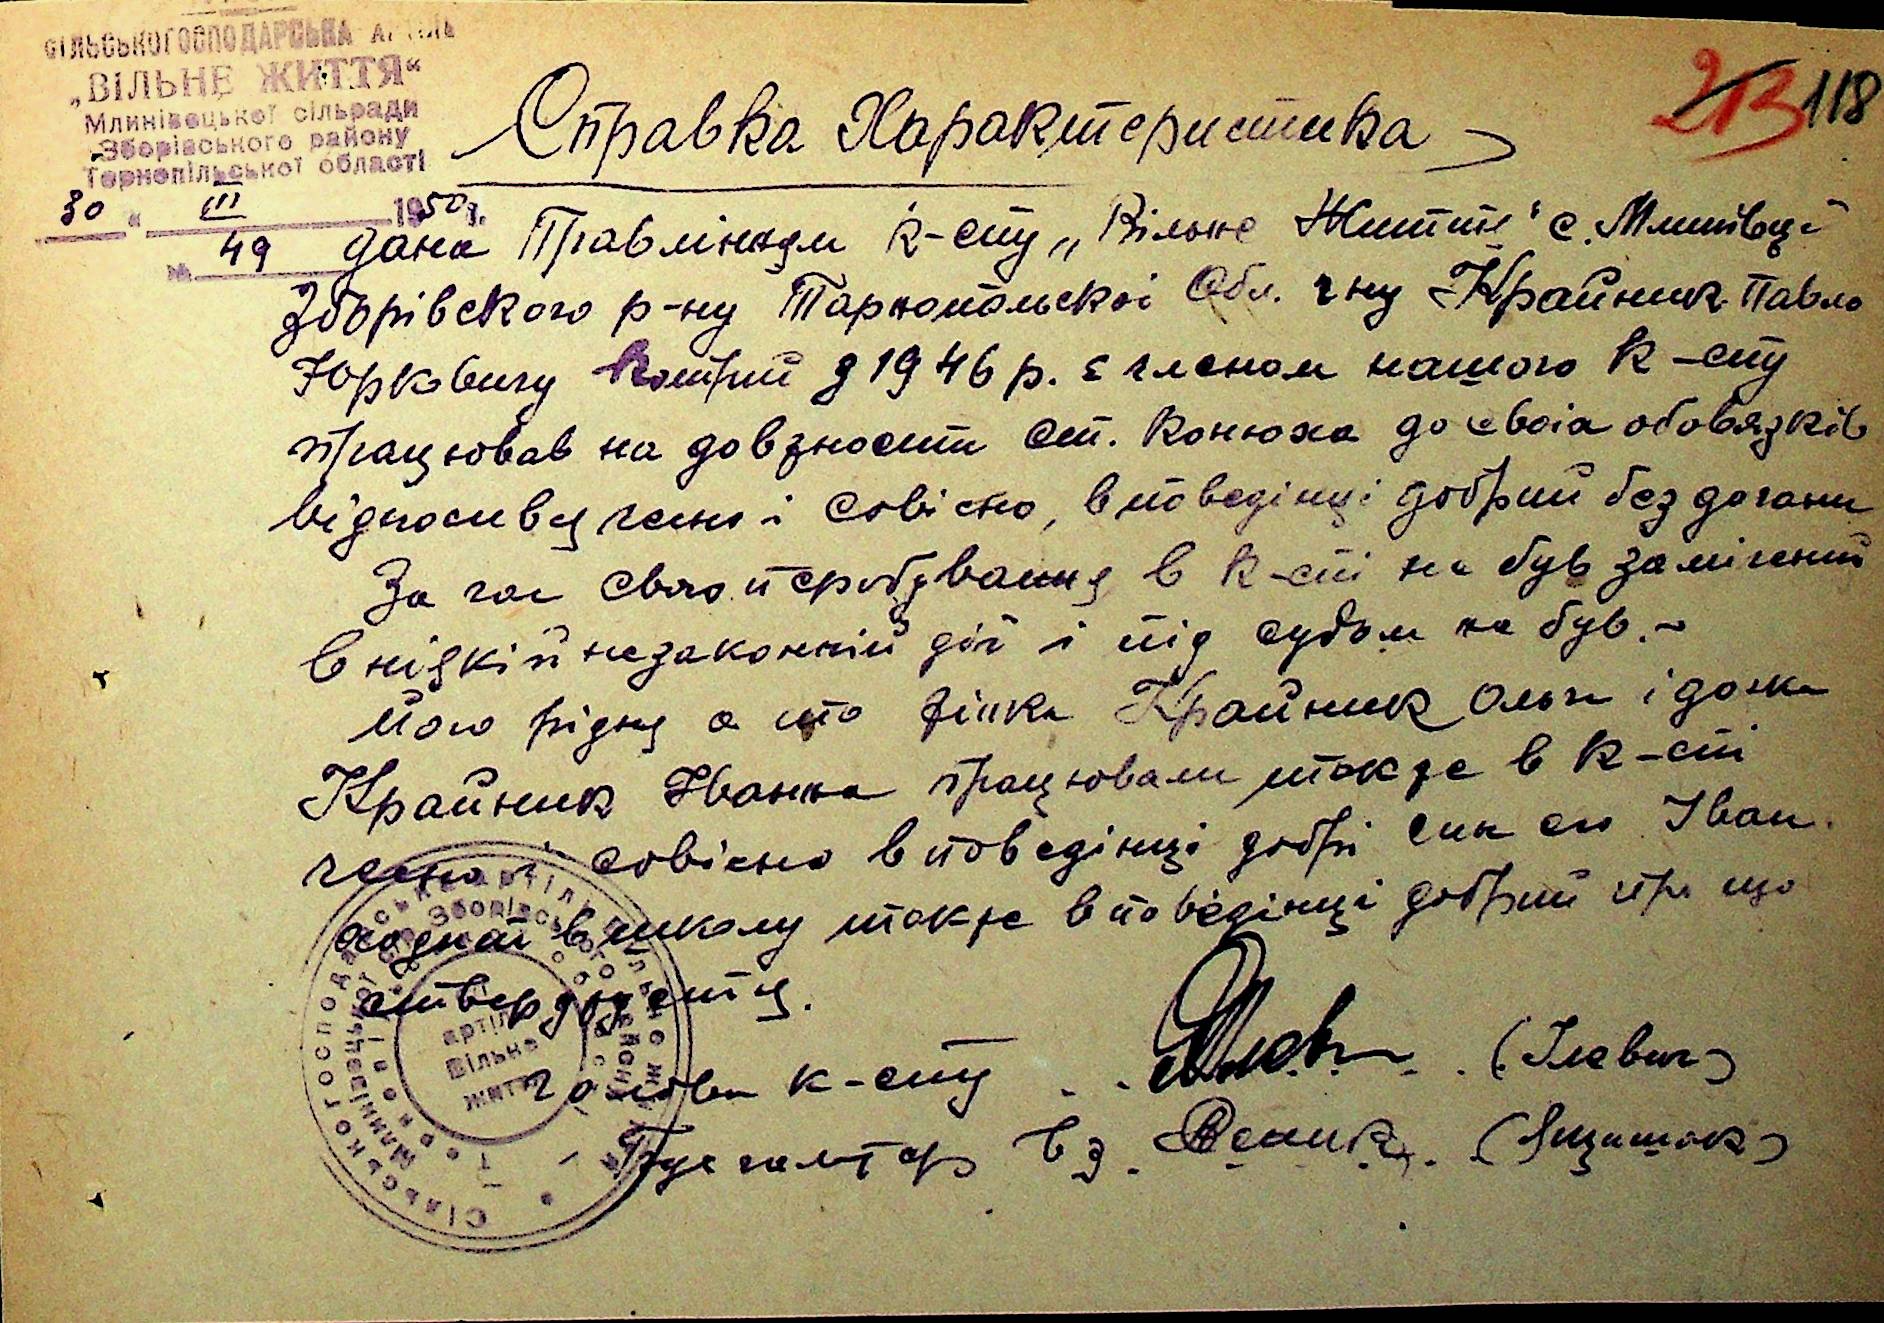 СІЛЬСЬКОГОСПОДАРСЬКА АРТІЛЬ
„ВІЛЬНЕ ЖИТТЯ“
Млинівецької сільради
Зборівського району
Тернопільської області
30 " III 1950 р.
№ 49
213 118
Справка Характеристика
дана Правлінням к-спу „Вільне Життє" с. Млинівці
Зборівского р-ну Тарнопольскоі Обл. гну Крайник Павло
Юрковичу котрий з 1946 р. є членом нашого к-спу
працював на довзности ст. конюха до своіа обовязків
відносився чесно і совісно, в поведінці добрий без догани
За час свяо перебування в к-спі не був замічений
в ніякій незаконній дії і під судом не був.~
Його рідня а то Зінка Крайник Ольга і дочка
Крайник Іванна працювали такзе в к-спі
чесно і совісно в поведінці добрі син єго Іван
ходит в школу такзе в поведінці добрий про що
ствердзуєтця.
голова к-спу (Ілевич)
Бухгалтер вз. (Яцишок)
Сільськогосподарська артіль Вільне життя
Млинівецької Зборівського району
артіль
Вільне
життя